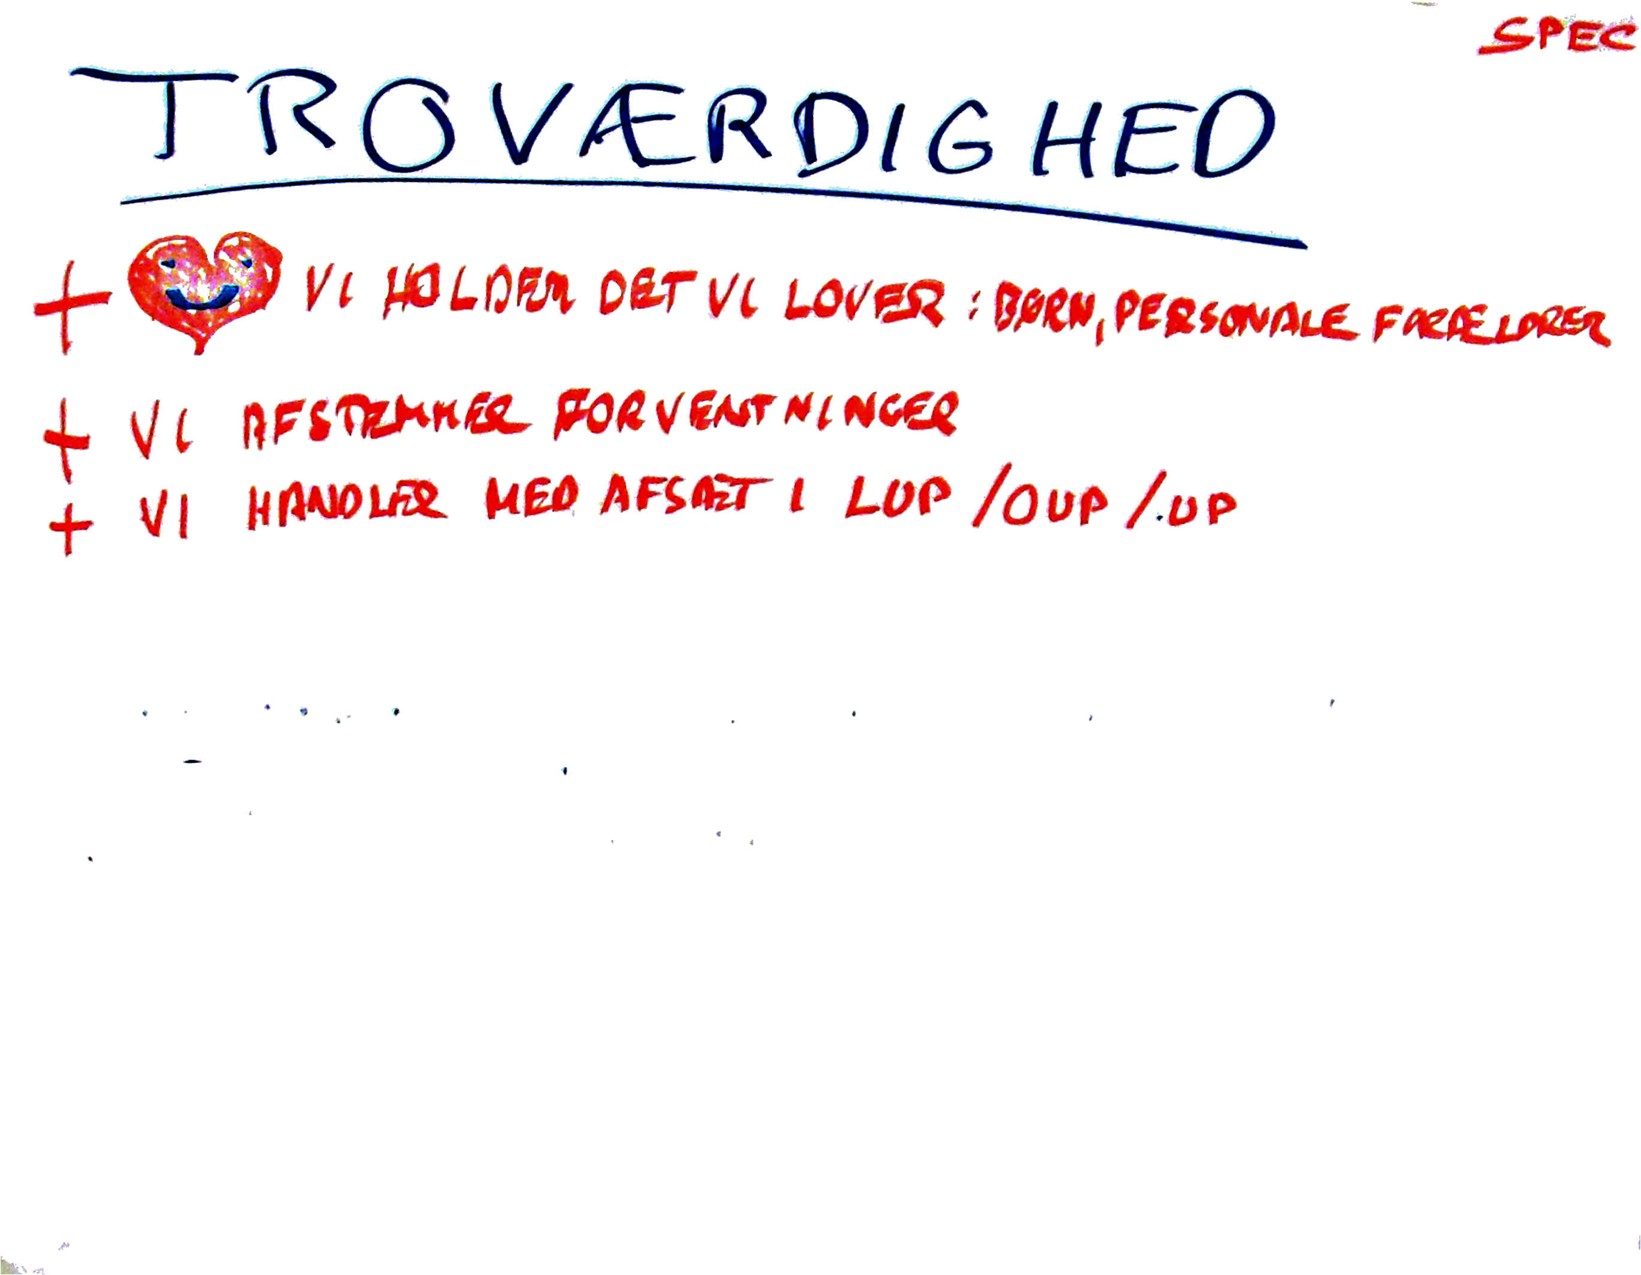 SPEC
TROVÆRDIGHED
+ VI HOLDER DET VI LOVER : BØRN, PERSONALE FORÆLDRER
+ VI AFSTEMMER FORVENTNINGER
+ VI HANDLER MED AFSÆT I LUP / OUP / UP